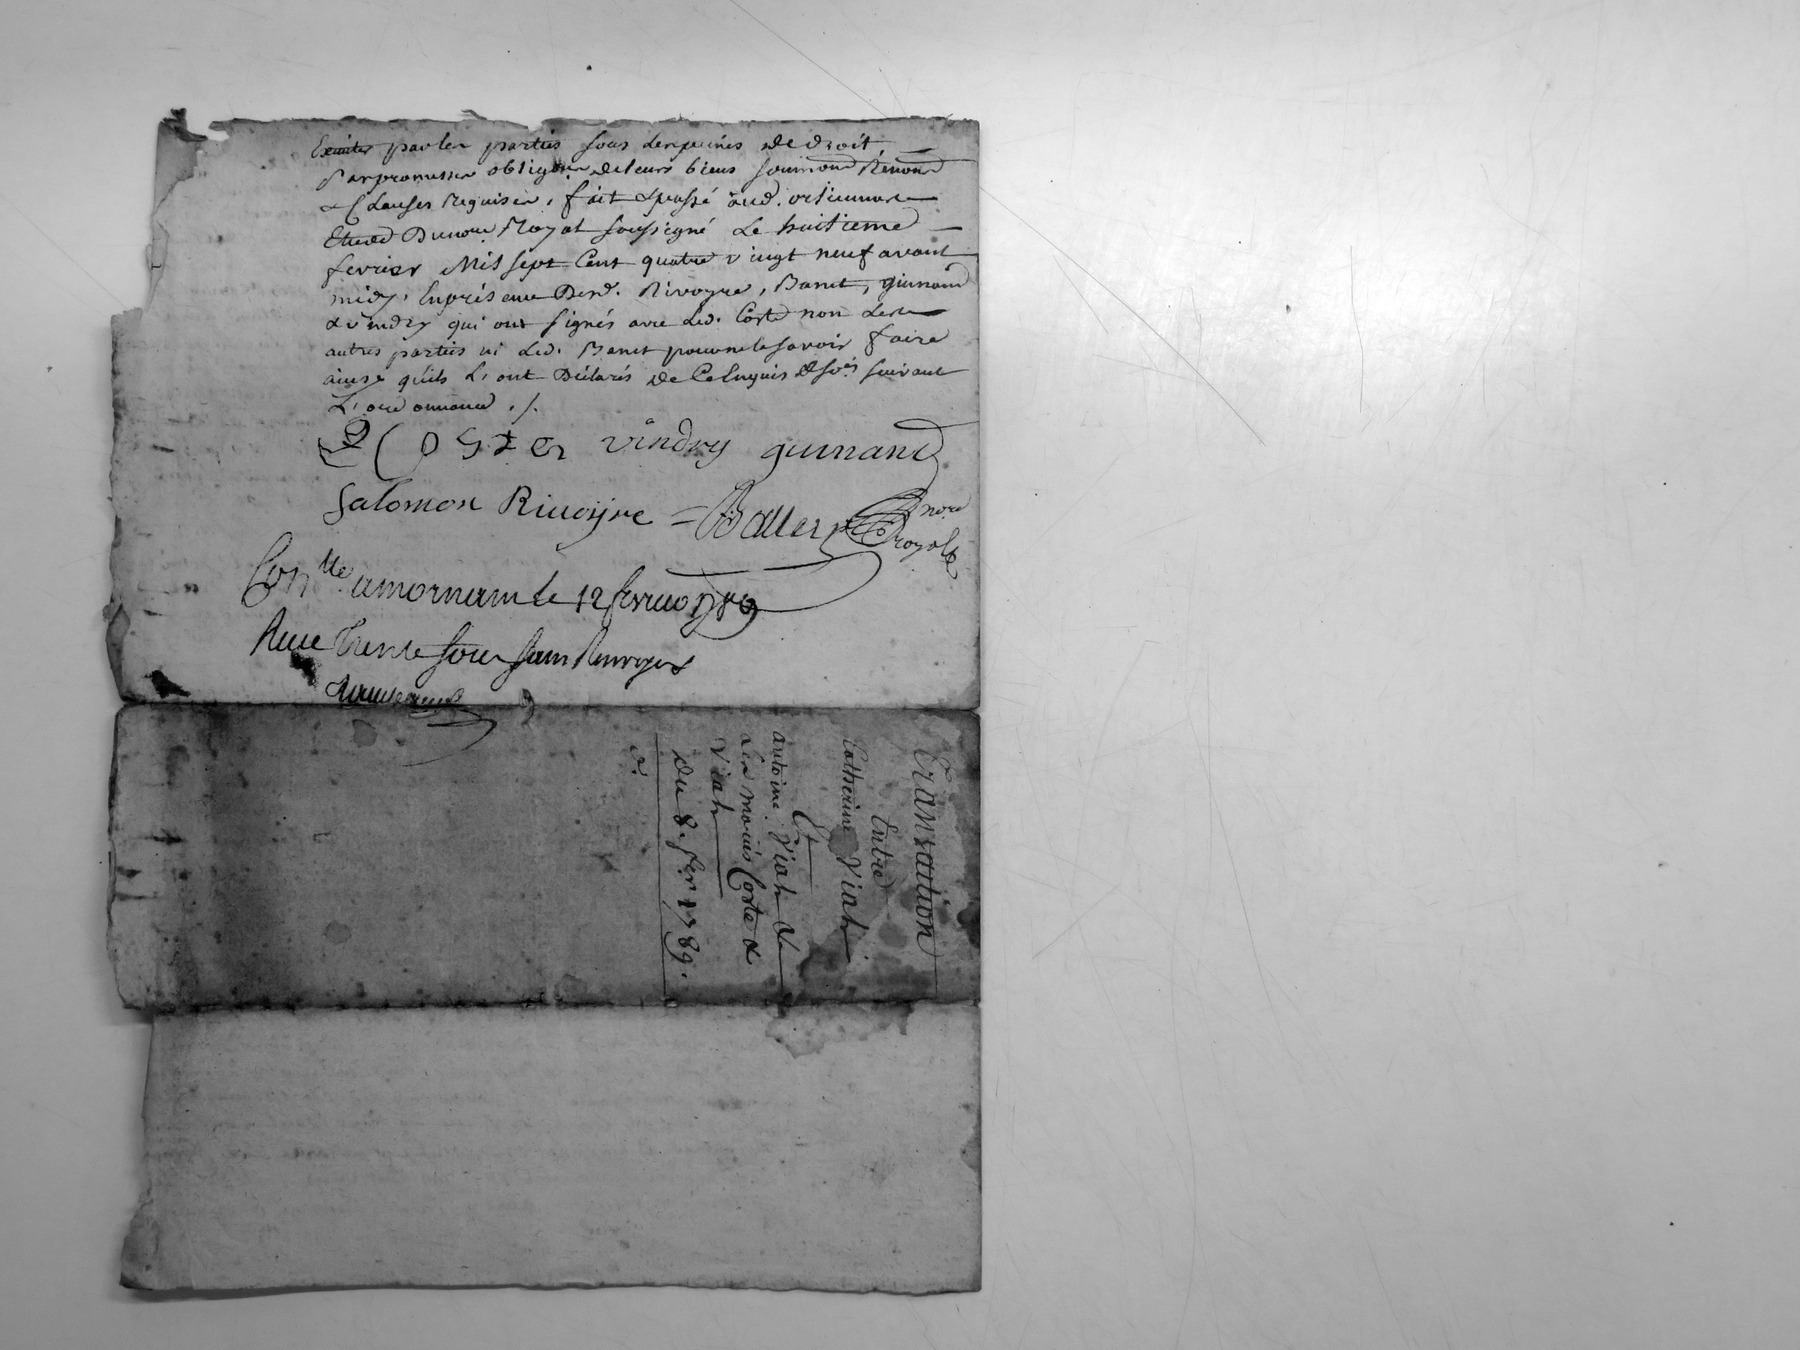 Exécuter par les parties sous les peines de droit
Par promesses obligõn de leurs biens soumiõns Renõns
& Clauses Requises, fait & passé aud.
Etude Du nore Royal soussigné Le huitieme
fevrier Mil sept Cent quatre vingt neuf avant
midy, En présence Desd. Rivoyre, Banet, guinand
& vindry qui ont signés avec Led. Coste non Les
autres parties ni Led. Banet pour ne le savoir faire
ainsy qu'ils L'ont Déclarés de Ce Enquis & soés suivant
L'ordonnance ./.
COSTE vindry guinand
Salomon Rivoyre = Baller nore
royal
Con.lle a mornant le 12 fevrier 1789
Recu trente sous
Transaction
Entre
Catherine Vial
Et
antoine Vial &
Les mariés Coste &
Vial
du 8. fer 1789.